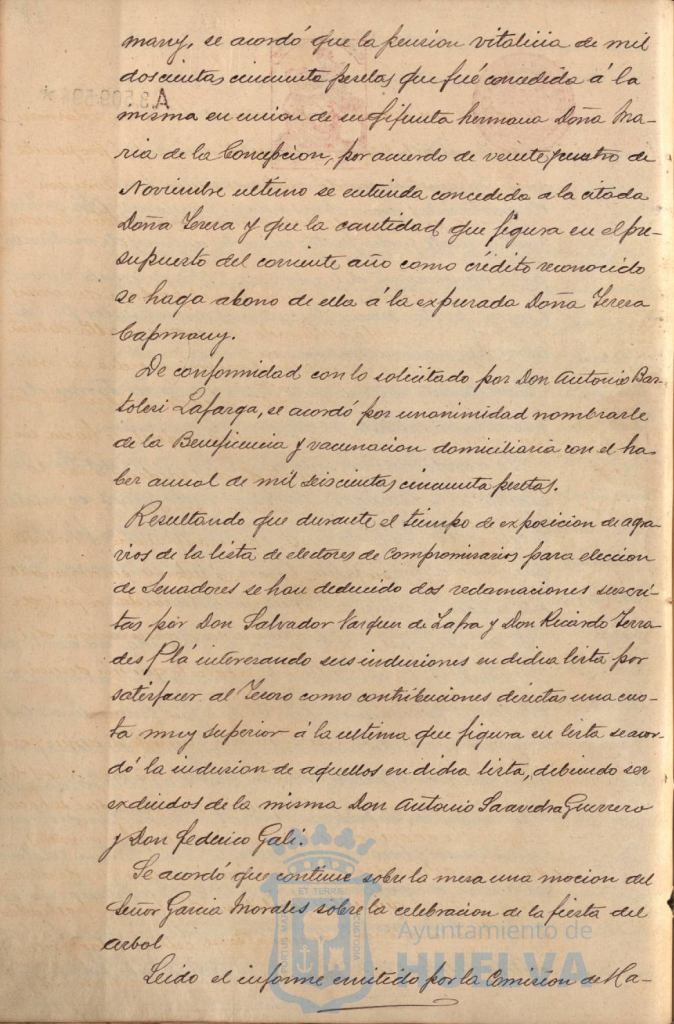 many, se acordó que la pension vitalicia de mil
doscientas cincuenta pesetas que fué concedida á la
misma en union de su difunta hermana Doña Ma-
ria de la Concepcion, por acuerdo de veinte y cuatro de
Noviembre ultimo se entienda concedida a la citada
Doña Teresa y que la cantidad que figura en el pre-
supuesto del corriente año como crédito reconocido
se haga abono de ella á la expresada Doña Teresa
Capmany.
De conformidad con lo solicitado por Don Antonio Bar-
tolesi Lafarga, se acordó por unanimidad nombrarle
de la Beneficencia y vacunacion domiciliaria con el ha-
ber anual de mil seiscientas cincuenta pesetas.
Resultando que durante el tiempo de exposicion de agra-
vios de la lista de electores de compromisarios para eleccion
de Senadores se han deducido dos reclamaciones suscri-
tas por Don Salvador Varquen de Zafra y Don Ricardo Terra-
des Plá interesando sus inclusiones en dicha lista por
satisfacer al Tesoro como contribuciones directas una cuo-
ta muy superior á la ultima que figura en lista se acor-
dó la inclusion de aquellos en dicha lista, debiendo ser
excluidos de la misma Don Antonio Saavedra Guerrero
y Don Federico Gali.
Se acordó que continue sobre la mesa una mocion del
Señor Garcia Morales sobre la celebracion de la fiesta del
arbol
Leido el informe emitido por la Comision de Ha-
Ayuntamiento de
HUELVA